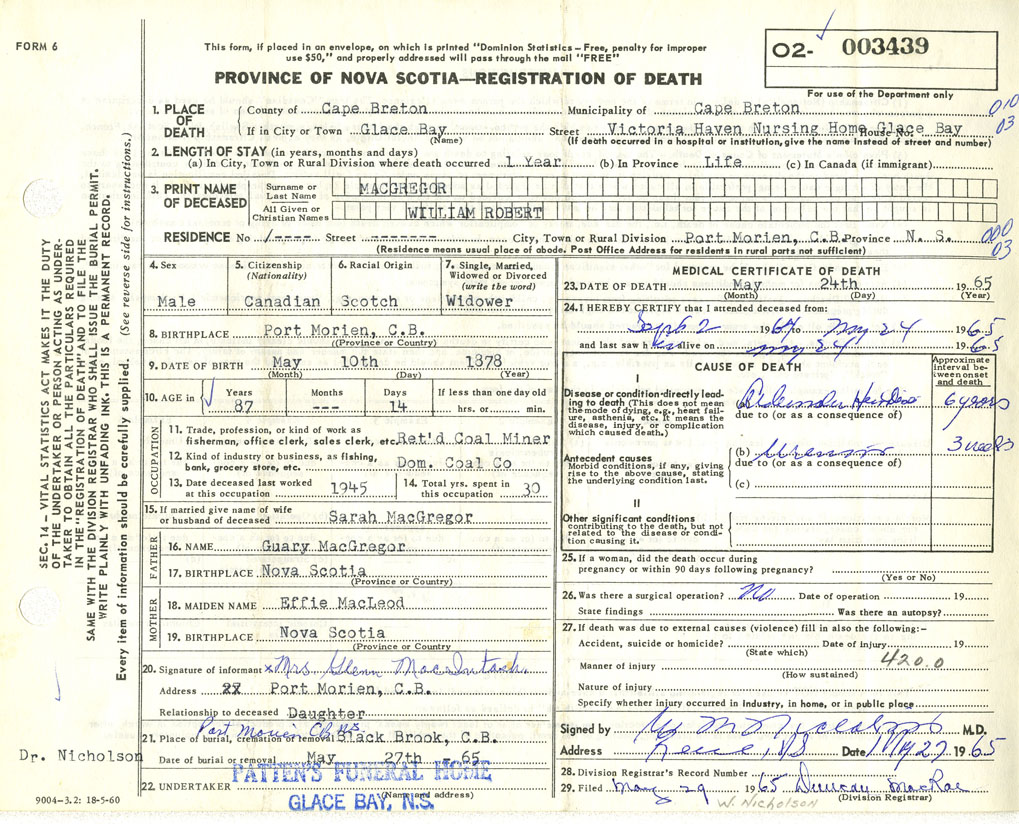 FORM 6
This form, if placed in an envelope, on which is printed "Dominion Statistics – Free, penalty for improper
use $50," and properly addressed will pass through the mail "FREE"
PROVINCE OF NOVA SCOTIA—REGISTRATION OF DEATH
O2- 003439
For use of the Department only
1. PLACE OF DEATH
County of Cape Breton Municipality of Cape Breton
010
03
If in City or Town Glace Bay Street Victoria Haven Nursing Home House No. Glace Bay
(Name) (If death occurred in a hospital or institution, give the name instead of street and number)
2. LENGTH OF STAY (in years, months and days)
(a) In City, Town or Rural Division where death occurred 1 Year (b) In Province Life (c) In Canada (if immigrant)
3. PRINT NAME OF DECEASED
Surname or Last Name MACGREGOR
All Given or Christian Names WILLIAM ROBERT
RESIDENCE No /---- Street ------- City, Town or Rural Division Port Morien, C.B. Province N. S.
000
03
(Residence means usual place of abode. Post Office Address for residents in rural parts not sufficient)
4. Sex Male
5. Citizenship (Nationality) Canadian
6. Racial Origin Scotch
7. Single, Married, Widowed or Divorced (write the word) Widower
8. BIRTHPLACE Port Morien, C.B.
(Province or Country)
9. DATE OF BIRTH May 10th 1878
(Month) (Day) (Year)
10. AGE in Years Months Days If less than one day old
87 --- 14 hrs. or min.
OCCUPATION
11. Trade, profession, or kind of work as
fisherman, office clerk, sales clerk, etc. Ret'd Coal Miner
12. Kind of industry or business, as fishing,
bank, grocery store, etc. Dom. Coal Co
13. Date deceased last worked at this occupation 1945
14. Total yrs. spent in this occupation 30
15. If married give name of wife
or husband of deceased Sarah MacGregor
FATHER
16. NAME Guary MacGregor
17. BIRTHPLACE Nova Scotia
(Province or Country)
MOTHER
18. MAIDEN NAME Effie MacLeod
19. BIRTHPLACE Nova Scotia
(Province or Country)
20. Signature of informant x Mrs Glenn MacIntosh.
Address 27 Port Morien, C.B.
Relationship to deceased Daughter
Port Morien CB NS
21. Place of burial, cremation or removal Black Brook, C.B.
Date of burial or removal May 27th -65
22. UNDERTAKER PATTEN'S FUNERAL HOME
(Name and address)
GLACE BAY, N.S.
9004–3.2: 18-5-60
Dr. Nicholson
MEDICAL CERTIFICATE OF DEATH
23. DATE OF DEATH May 24th 1965
(Month) (Day) (Year)
24. I HEREBY CERTIFY that I attended deceased from:
Sept 2 1964 to May 24 1965
and last saw h alive on May 24 1965
CAUSE OF DEATH
Approximate interval between onset and death
I
Disease or condition directly leading to death (This does not mean
the mode of dying, e.g., heart failure, asthenia, etc. It means the
disease, injury, or complication
which caused death.)
due to (or as a consequence of)
6 years
Antecedent causes
Morbid conditions, if any, giving
rise to the above cause, stating
the underlying condition last.
(b) Uremia 3 weeks
due to (or as a consequence of)
(c)
II
Other significant conditions
contributing to the death, but not
related to the disease or condition causing it.
25. If a woman, did the death occur during
pregnancy or within 90 days following pregnancy?
(Yes or No)
26. Was there a surgical operation? No Date of operation 19
State findings Was there an autopsy?
27. If death was due to external causes (violence) fill in also the following:–
Accident, suicide or homicide? Date of injury 19
(State which)
420.0
Manner of injury
(How sustained)
Nature of injury
Specify whether injury occurred in Industry, in home, or in public place
Signed by M.D.
Address Date 27 1965
28. Division Registrar's Record Number
29. Filed May 29 1965 Duncan MacRae
(Division Registrar)
W. Nicholson
SEC. 14 – VITAL STATISTICS ACT MAKES IT THE DUTY
OF THE UNDERTAKER OR PERSON ACTING AS UNDER-
TAKER TO OBTAIN ALL THE PARTICULARS REQUIRED
IN THE "REGISTRATION OF DEATH" AND TO FILE THE
SAME WITH THE DIVISION REGISTRAR WHO SHALL ISSUE THE BURIAL PERMIT.
WRITE PLAINLY WITH UNFADING INK. THIS IS A PERMANENT RECORD.
Every item of information should be carefully supplied. (See reverse side for instructions.)